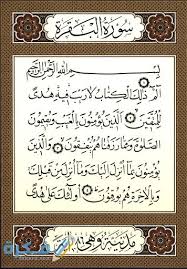 سُورَةُ الْبَقَرَةِ
بِسْمِ اللَّهِ الرَّحْمَٰنِ الرَّحِيمِ
الٓمٓ ذَٰلِكَ الْكِتَابُ لَا رَيْبَ فِيهِ هُدًى
لِّلْمُتَّقِينَ الَّذِينَ يُؤْمِنُونَ بِالْغَيْبِ وَيُقِيمُونَ
الصَّلَاةَ وَمِمَّا رَزَقْنَاهُمْ يُنفِقُونَ وَالَّذِينَ
يُؤْمِنُونَ بِمَا أُنزِلَ إِلَيْكَ وَمَا أُنزِلَ مِن قَبْلِكَ
وَبِالْآخِرَةِ هُمْ يُوقِنُونَ أُولَٰئِكَ عَلَىٰ هُدًى
مَدَنِيَّة وَهِيَ